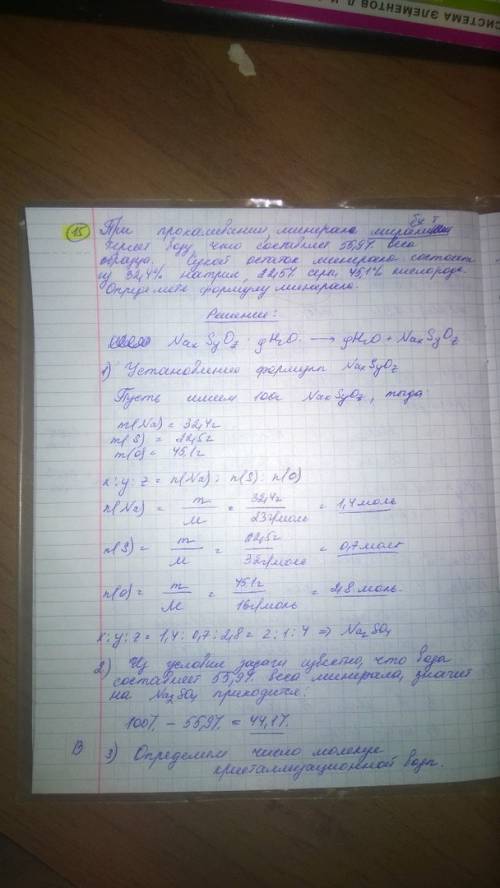 СИСТЕМА ЭЛЕМЕНТОВ Д. И.
15
При прокаливании минерала
теряет воду, что составляет 55,9% веса
образца. Сухой остаток минерала состоит
из 32,4% натрия, 22,5% серы, 45,1% кислорода.
Определите формулу минерала.
Решение:
NaxSyOz · gH2O ⟶ gH2O + NaxSyOz
1) Установление формулы NaxSyOz
Пусть имеем 100г NaxSyOz, тогда
m(Na) = 32,4г
m(S) = 22,5г
m(O) = 45,1г
x : y : z = n(Na) : n(S) : n(O)
n(Na) = m/M = 32,4г/23г/моль = 1,4 моль
n(S) = m/M = 22,5г/32г/моль = 0,7 моль
n(O) = m/M = 45,1г/16г/моль = 2,8 моль
x : y : z = 1,4 : 0,7 : 2,8 = 2 : 1 : 4 ⇒ Na2SO4
2) Из условия задачи известно, что вода
составляет 55,9% веса минерала, значит
на Na2SO4 приходится:
100% - 55,9% = 44,1%
В 3) Определяем число молекул
кристаллизационной воды.